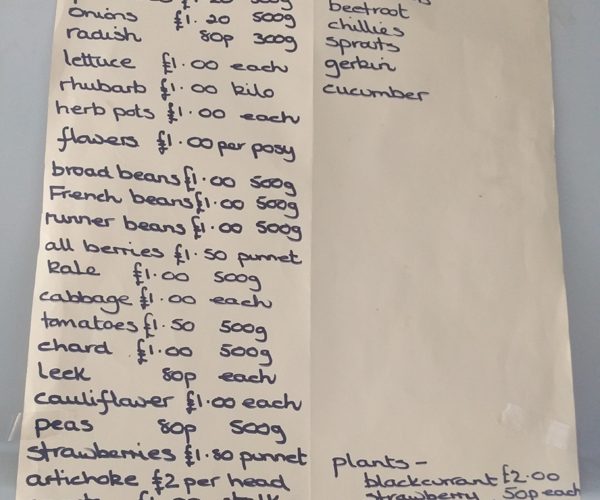 onions £1.20 500g
radish 80p 300g
lettuce £1.00 each
rhubarb £1.00 kilo
herb pots £1.00 each
flowers £1.00 per posy
broad beans £1.00 500g
French beans £1.00 500g
runner beans £1.00 500g
all berries £1.50 punnet
kale £1.00 500g
cabbage £1.00 each
tomatoes £1.50 500g
chard £1.00 500g
leek 80p each
cauliflower £1.00 each
peas 80p 500g
strawberries £1.80 punnet
artichoke £2 per head
beetroot
chillies
sprouts
gerkin
cucumber
plants -
blackcurrant £2.00
strawberry 50p each